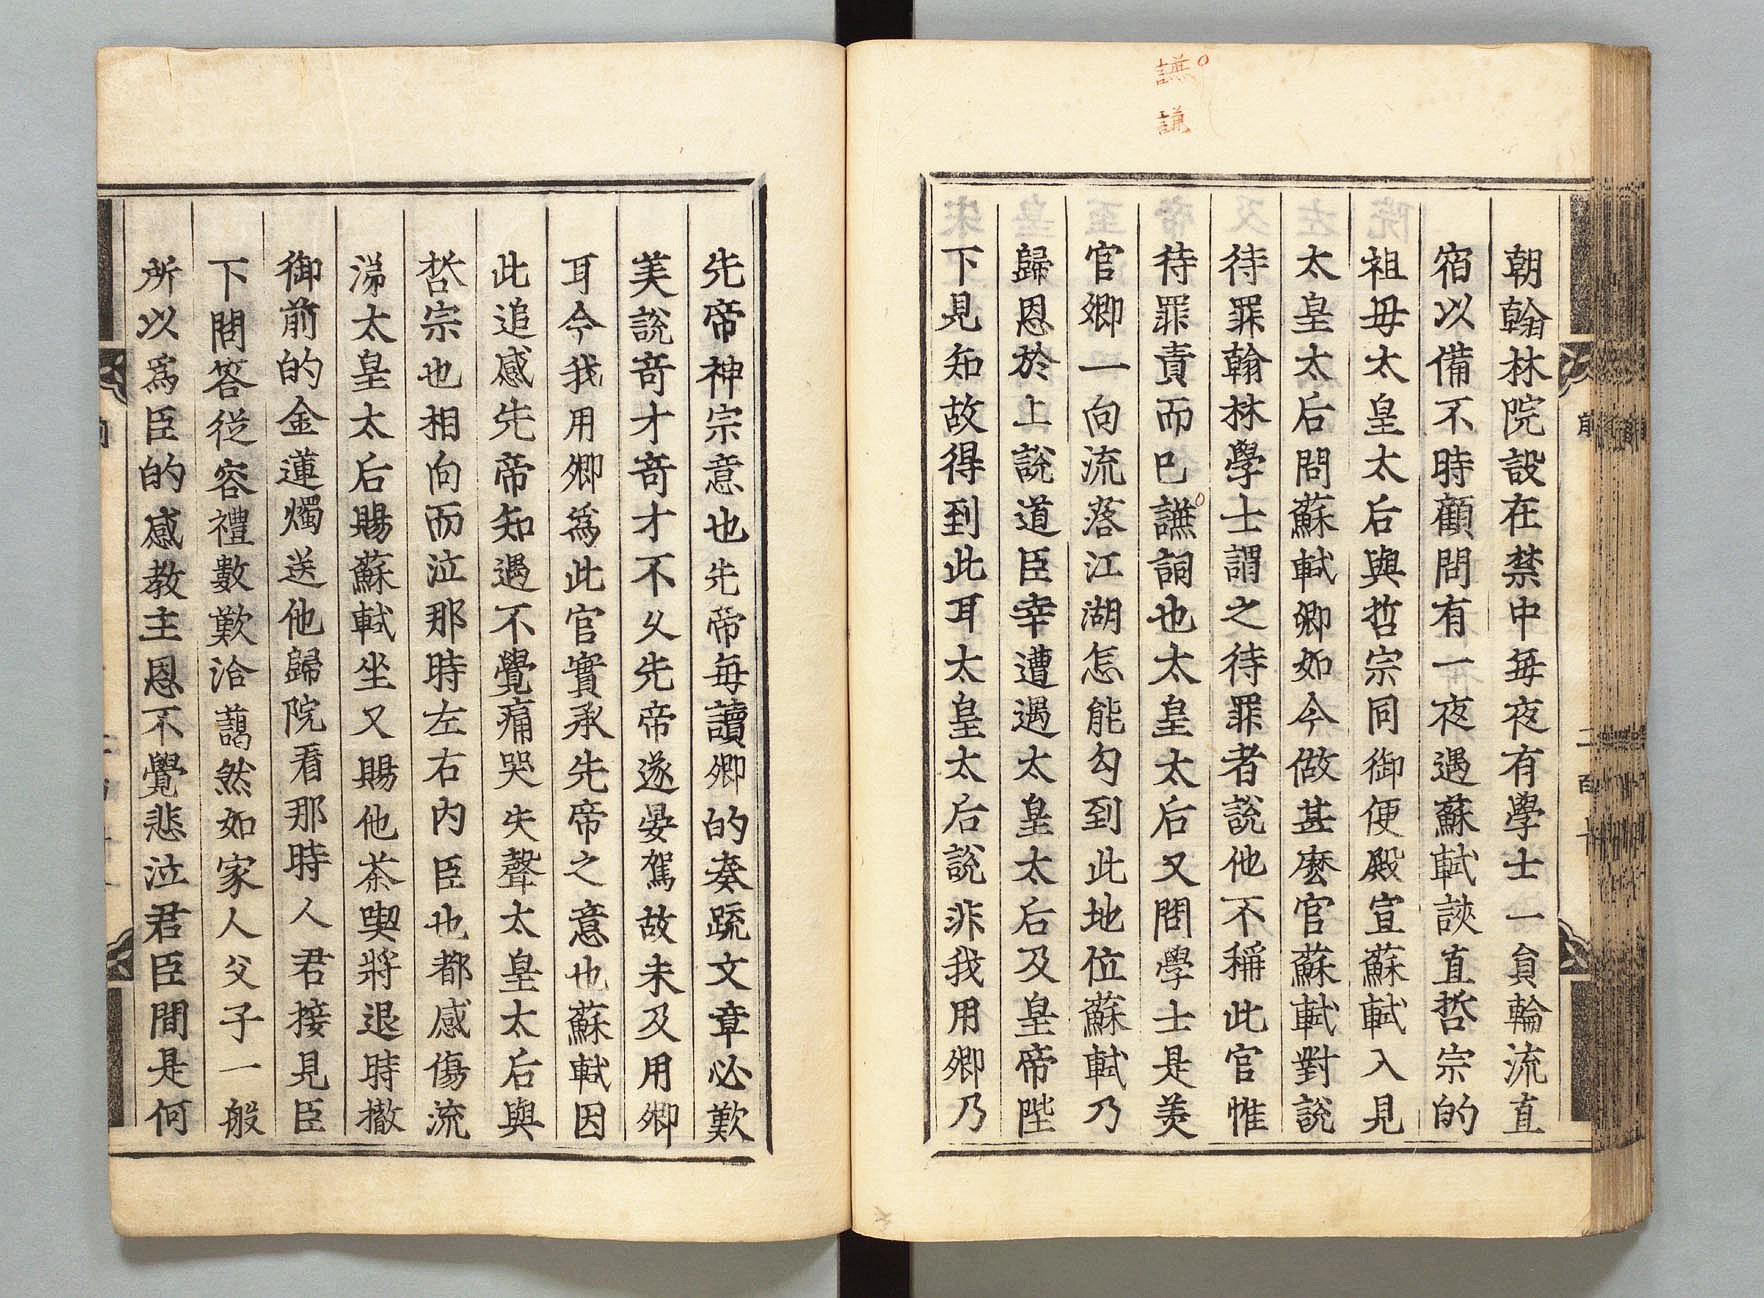 譕
謙
朝翰林院設在禁中每夜有學士一員輪流直
宿以備不時顧問有一夜遇蘇軾該直哲宗的
祖母太皇太后與哲宗同御便殿宣蘇軾入見
太皇太后問蘇軾卿如今做甚麽官蘇軾對說
待罪翰林學士謂之待罪者說他不稱此官惟
待罪責而已譕詞也太皇太后又問學士是美
官卿一向流落江湖怎能勾到此地位蘇軾乃
歸恩於上說道臣幸遭遇太皇太后及皇帝陛
下見知故得到此耳太皇太后說非我用卿乃
先帝神宗意也先帝每讀卿的奏疏文章必歎
美說奇才奇才不久先帝遂晏駕故未及用卿
耳今我用卿爲此官實承先帝之意也蘇軾因
此追感先帝知遇不覺痛哭失聲太皇太后與
哲宗也相向而泣那時左右內臣也都感傷流
涕太皇太后賜蘇軾坐又賜他茶喫將退時撤
御前的金蓮燭送他歸院看那時人君接見臣
下問答從容禮數歎洽藹然如家人父子一般
所以爲臣的感教主恩不覺悲泣君臣間是何